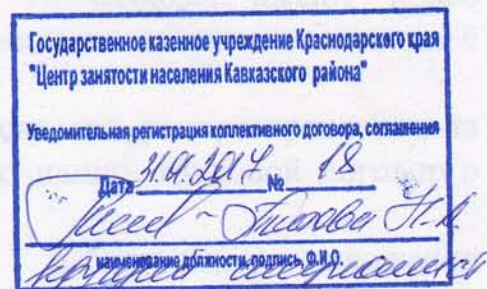 Государственное казенное учреждение Краснодарского края
"Центр занятости населения Кавказского района"
Уведомительная регистрация коллективного договора, соглашения
Дата 31.01.2017 № 18
Н.А.
наименование должности, подпись, Ф.И.О.
ведущий инспектор